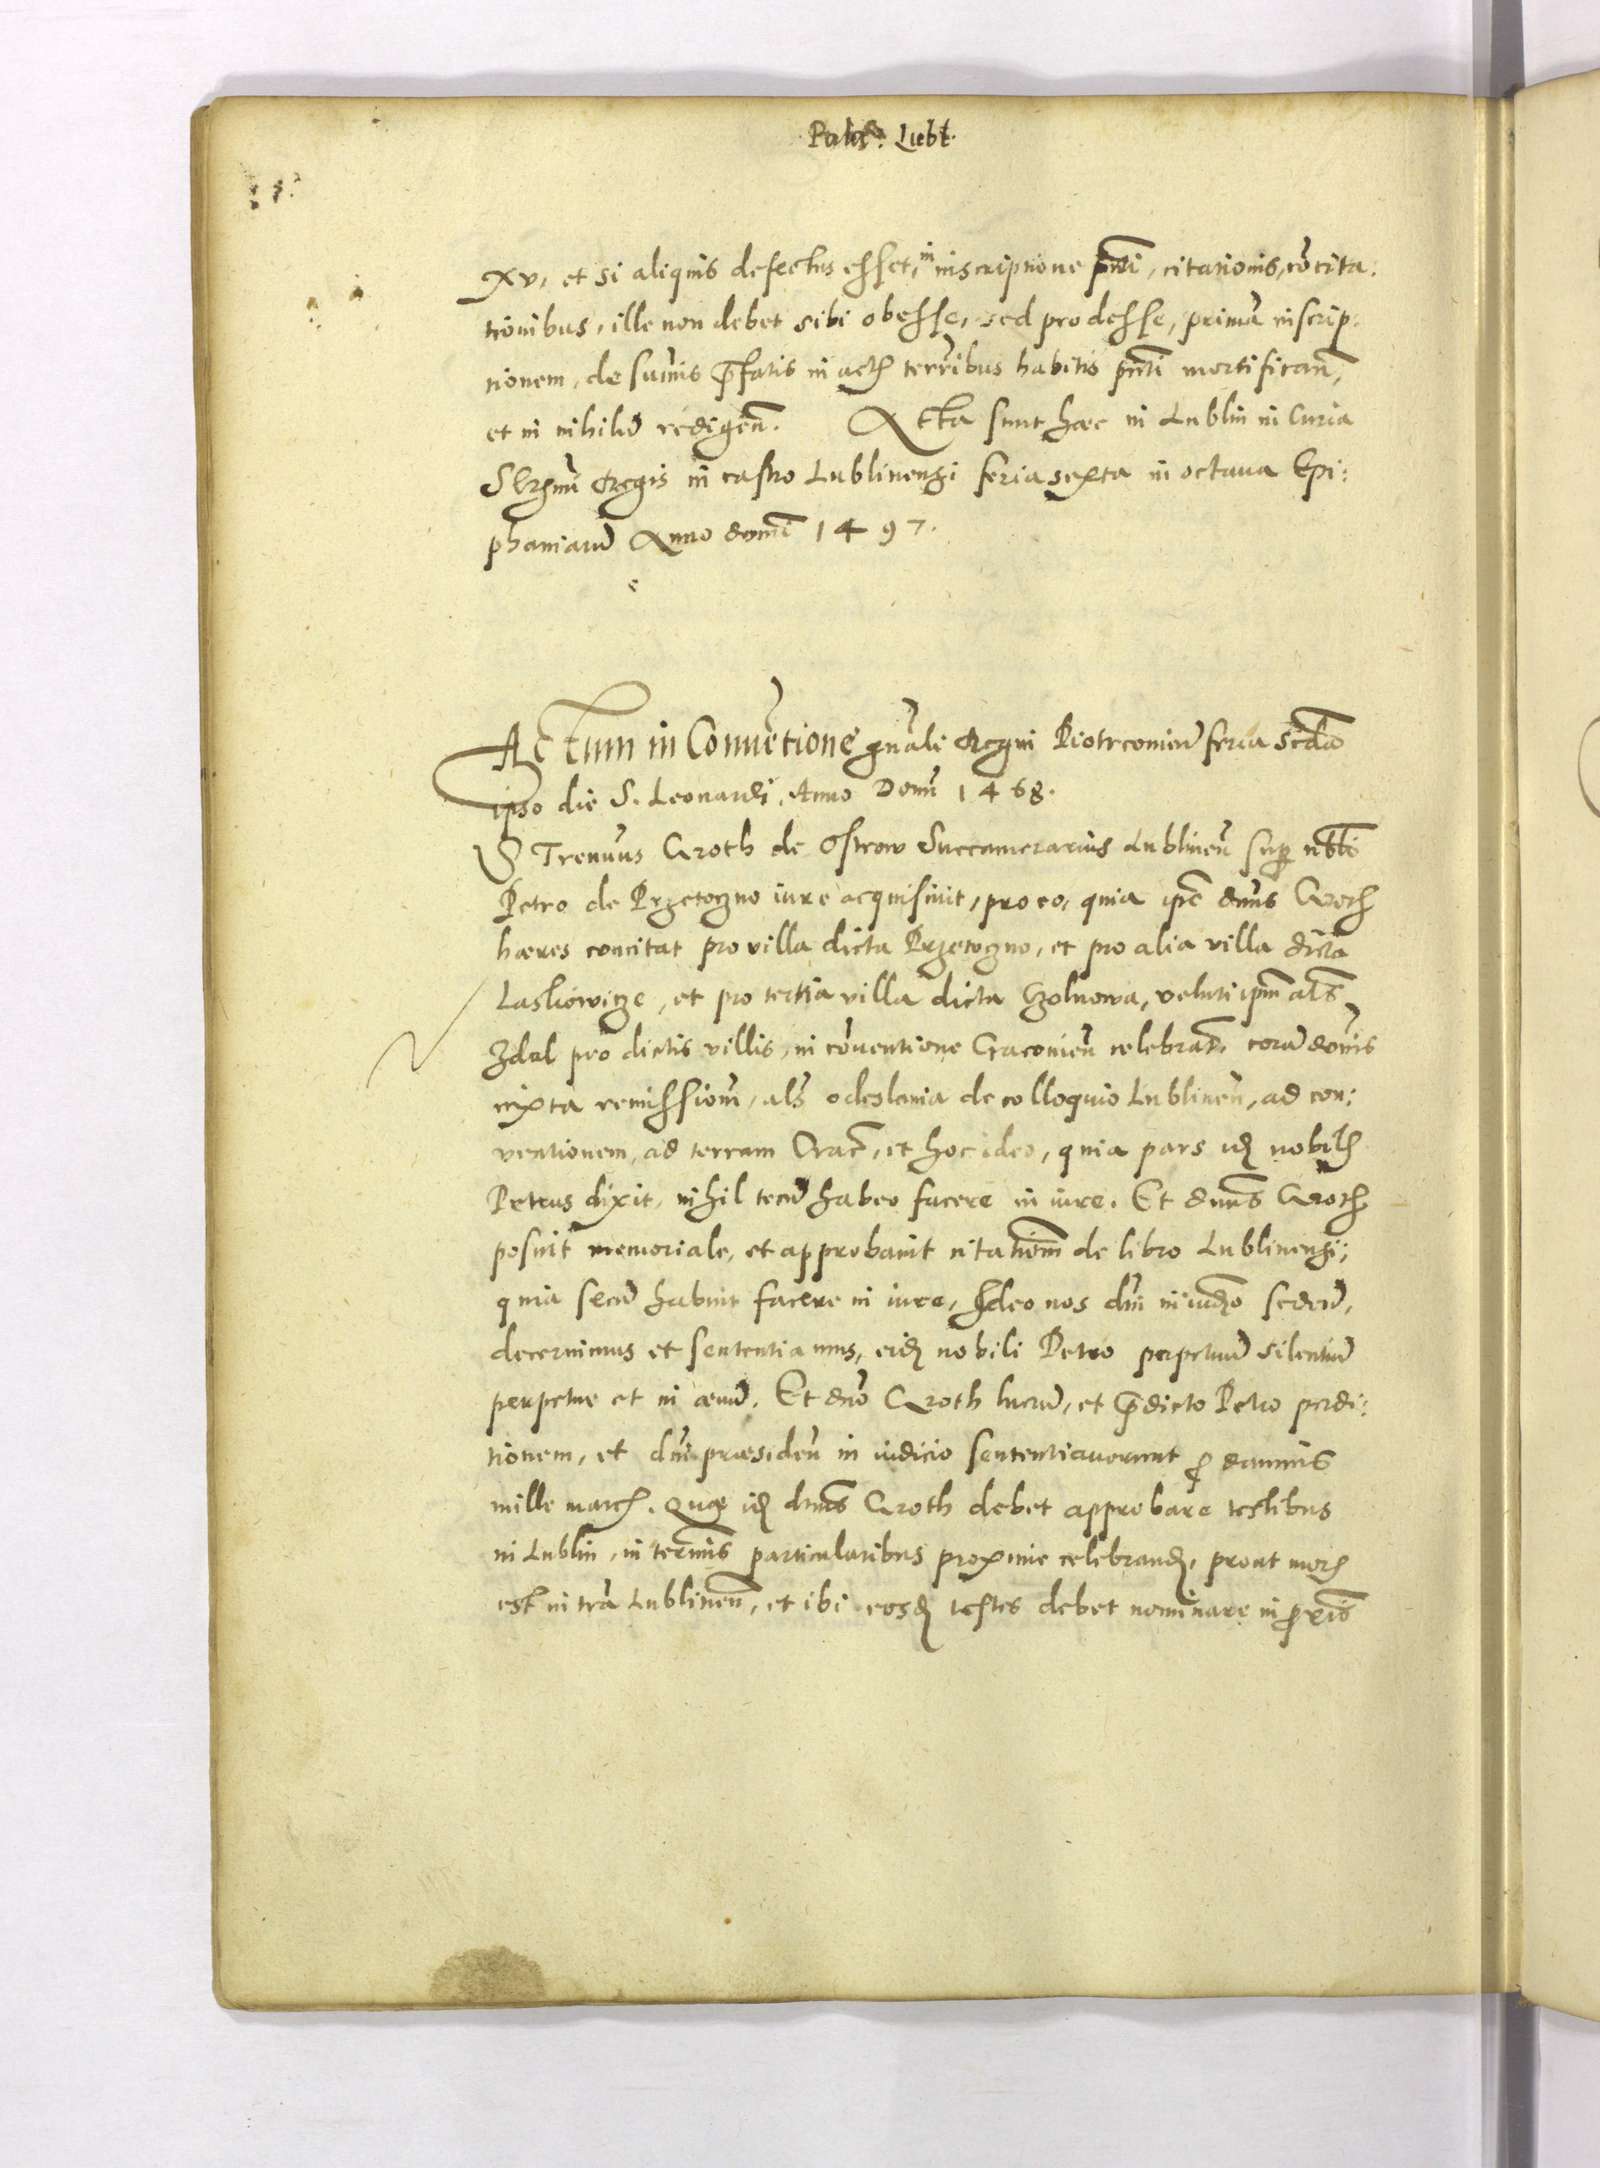 Palat: Lubl.
xv, et si aliquis defectus esset, in inscriptione pnti, citationis, cōcita:
tionibus, ille non debet sibi obesse, sed prodesse, primā inscrip:
tionem, de sumis p̄fatis in act terribus habitis pnti mortifican̄,
et in nihilū redigen̄. Acta sunt haec in Lublin in Curia
Regis in castro Lublinensi feria sexta in octaua Epi:
phaniarū Anno domi 1497.
Actum in Conuētione gnāli Regni Piotrcouien̄ feria scda
ipso die S. Leonardi, Anno Domi 1468.
Strenuus Groth de Ostrow Succamerarius Lublinen̄ sup nobli
Petro de Przetoczno iure acquisiuit, pro eo, quia ipse dnus Groth
haeres concitat pro villa dicta Przetoczno, et pro alia villa dicta
Laskowicze, et pro tertia villa dicta Czolnowa, veluti ipm als
Zdal pro dictis villis, in cōuentione Cracouien̄ celebrat, corā domis
iuxta remissiom, als odeslania de colloquio Lublinen̄, ad con:
ventionem, ad terram Crac, et hoc ideo, quia pars idz nobilis
Petrus dixit, nihil tecū habeo facere in iure. Et dnus Groth
posuit memoriale, et approbauit citationem de libro Lublinensi,
quia secū habuit facere in iure, Ideo nos dni in iudo seden̄,
decernimus et sententiamus, eidz nobili Petro perpetuū silentiū
perpetue et in aeuū. Et dno Groth lucrū, et p̄dicto Petro perdi:
tionem, et dni praesiden̄ in iudicio sententiauerunt p damnis
mille march. Quae idz dnus Groth debet approbare testibus
in Lublin, in termis particularibus proxime celebrandz, prout moris
est in tra Lublinen̄, et ibi eosdz testes debet nominare in pxis